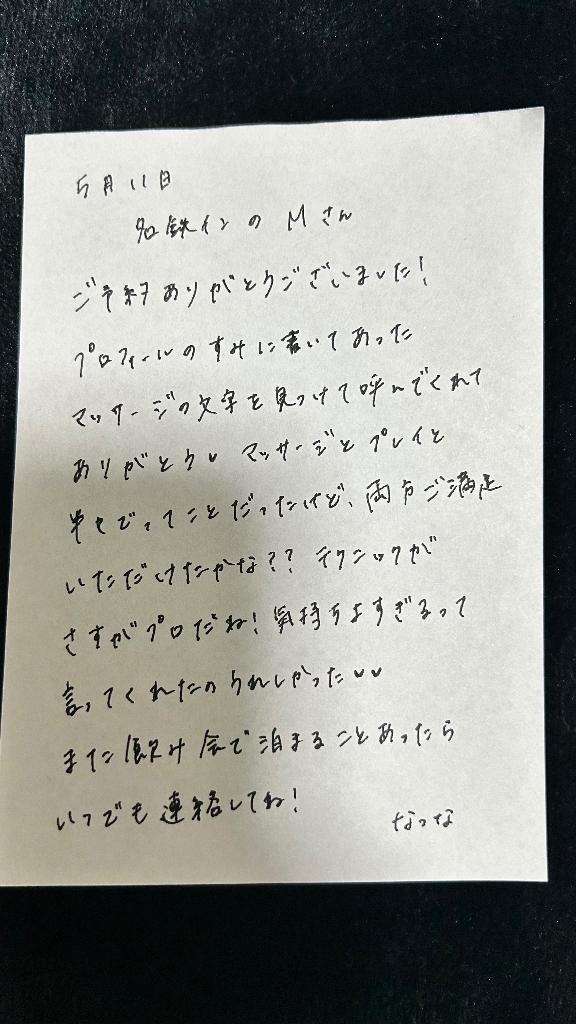 5月11日
名鉄インの Mさん
ご予約ありがとうございました!
プロフィールのすみに書いてあった
マッサージの文字を見つけて呼んでくれて
ありがとう♡ マッサージとプレイと
半々でってことだったけど、両方ご満足
いただけたかな?? テクニックが
さすがプロだね!気持ちよすぎるって
言ってくれたのうれしかった♡♡
また飲み会で泊まることあったら
いつでも連絡してね!
なつな